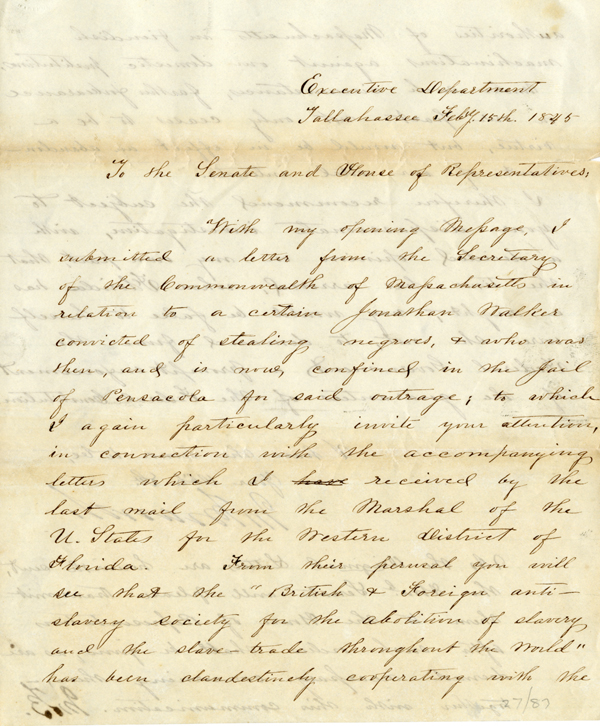 Executive Department
Tallahassee Feby. 15th. 1845
To the Senate and House of Representatives;
With my opening Message, I
submitted a letter from the Secretary
of the Commonwealth of Massachusetts in
relation to a certain Jonathan Walker
convicted of stealing negroes, & who was
then, and is now, confined in the Jail
of Pensacola for said outrage; to which
I again particularly invite your attention,
in connection with the accompanying
letters which I have received by the
last mail from the Marshal of the
U. States for the Western District of
Florida. From their perusal you will
see that the "British & Foreign anti-
slavery society for the abolition of slavery
and the slave-trade throughout the World"
has been clandestinely cooperating with the
27/87